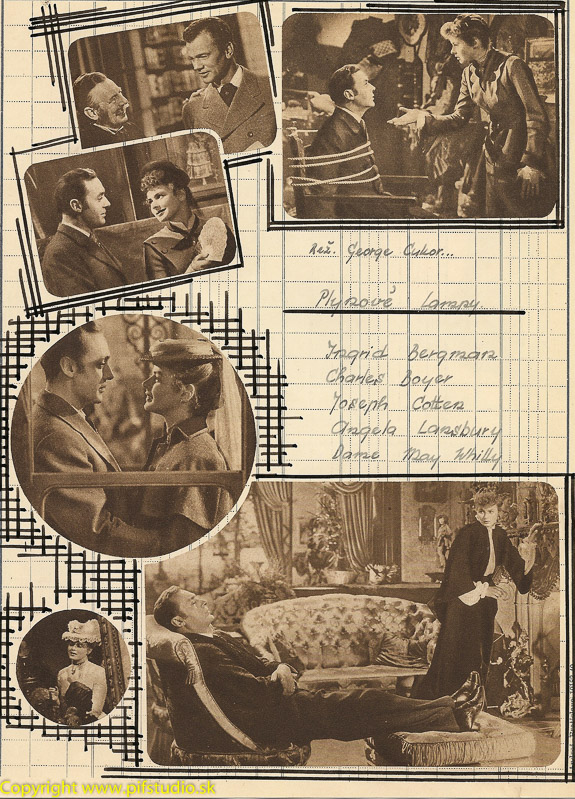 Rež. George Cukor...
Plynové Lampy
Ingrid Bergman
Charles Boyer
Joseph Cotten
Angela Lansbury
Dame May Whilly
Copyright www.pifstudio.sk